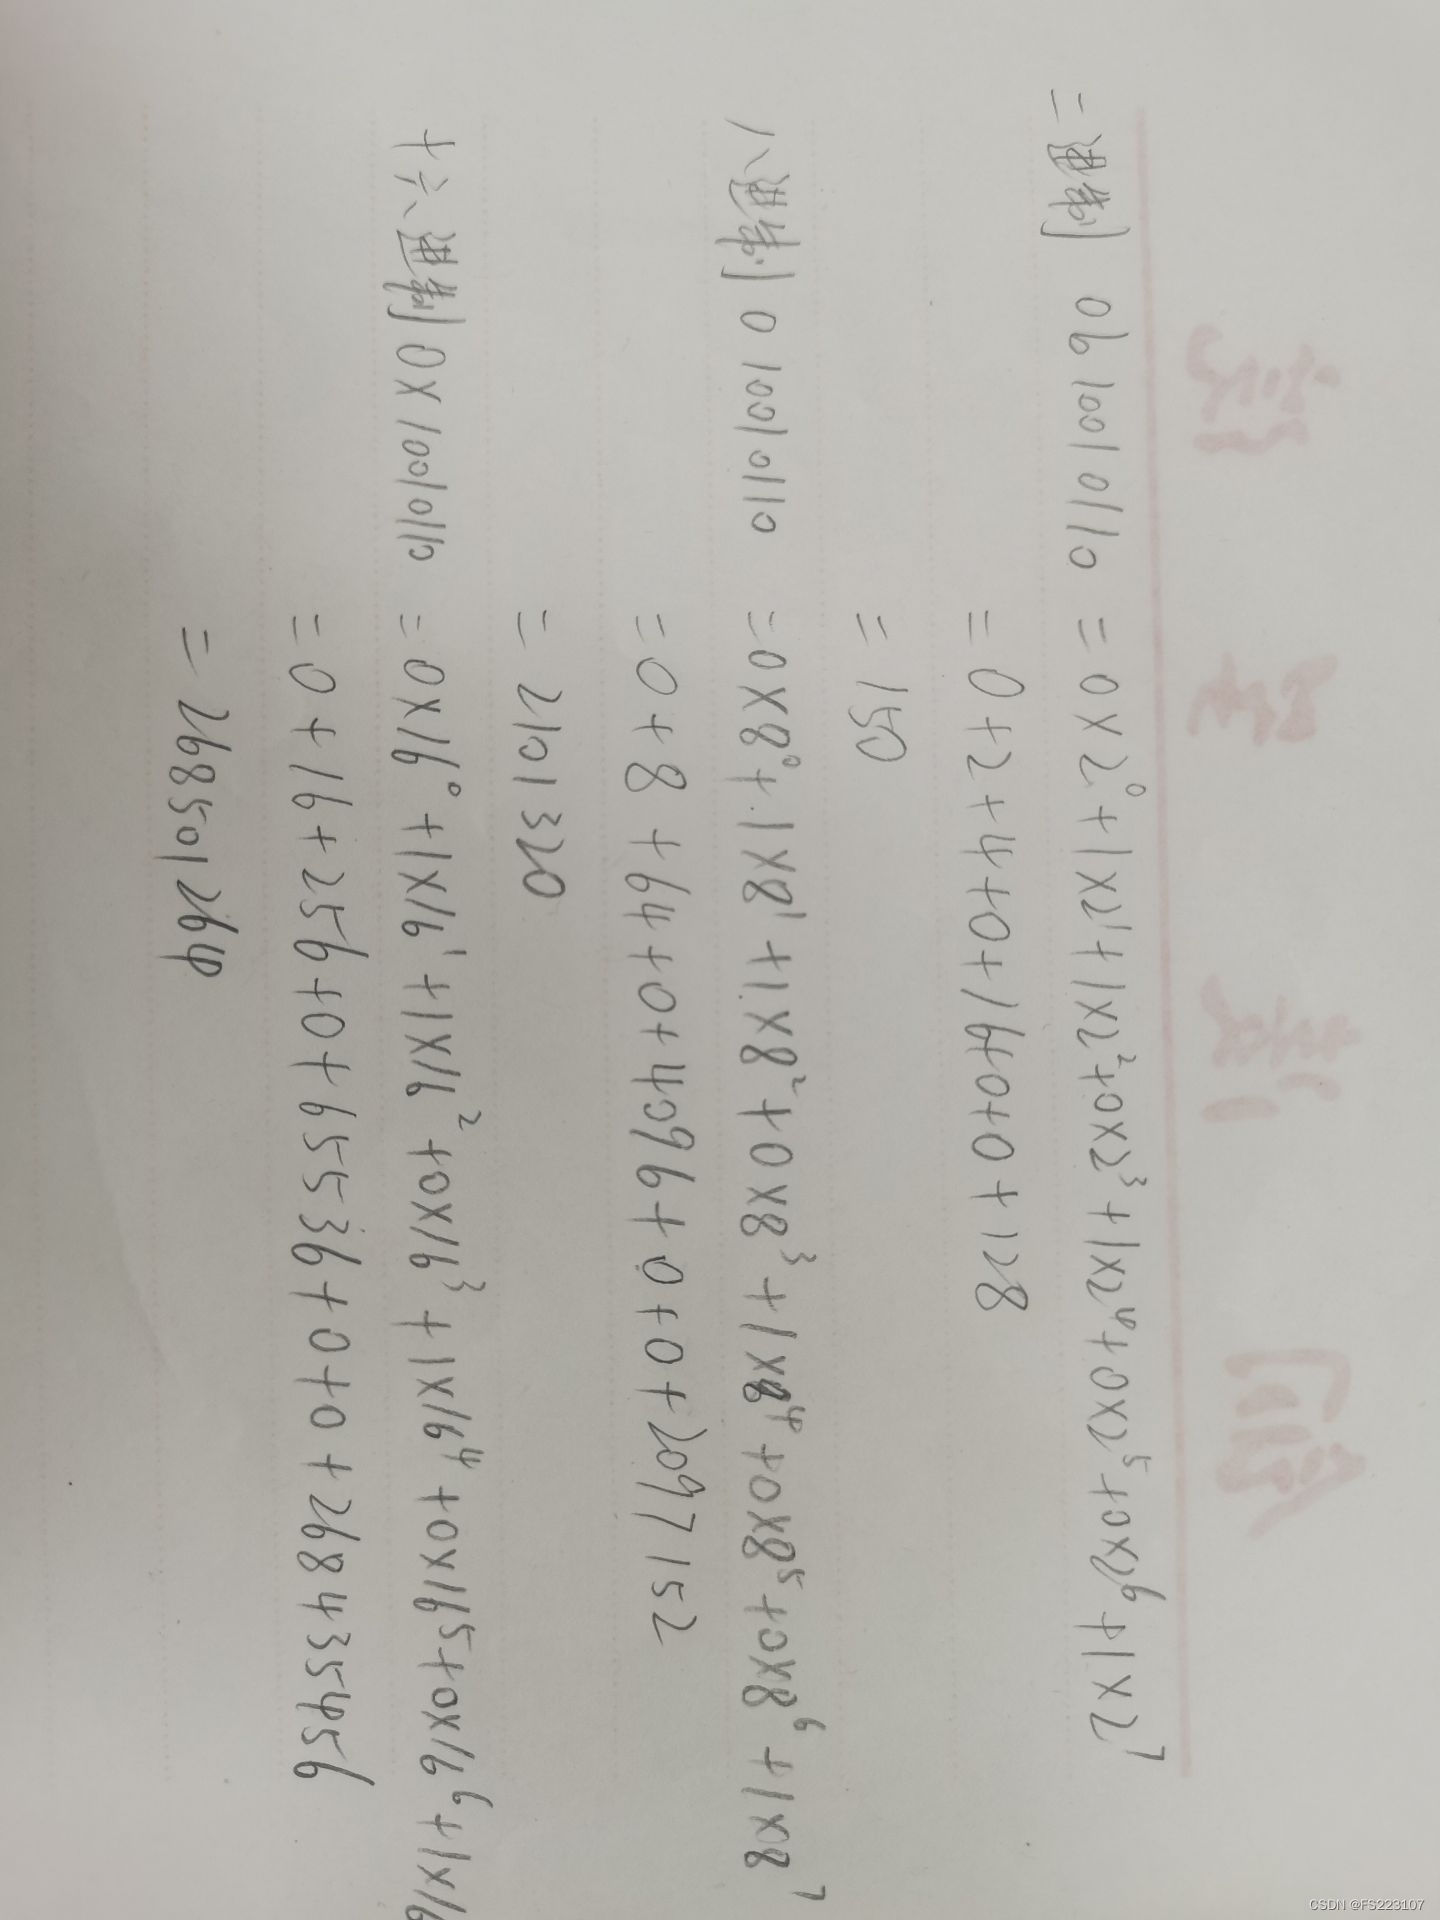 二进制 0b 10010110 = 0×2⁰+1×2¹+1×2²+0×2³+1×2⁴+0×2⁵+0×2⁶+1×2⁷
= 0+2+4+0+16+0+0+128
= 150
八进制 0 10010110 = 0×8⁰+1×8¹+1×8²+0×8³+1×8⁴+0×8⁵+0×8⁶+1×8⁷
= 0+8+64+0+4096+0+0+2097152
= 2101320
十六进制 0X 10010110 = 0×16⁰+1×16¹+1×16²+0×16³+1×16⁴+0×16⁵+0×16⁶+1×16
= 0+16+256+0+65536+0+0+268435456
= 268501264
CSDN @FS223107